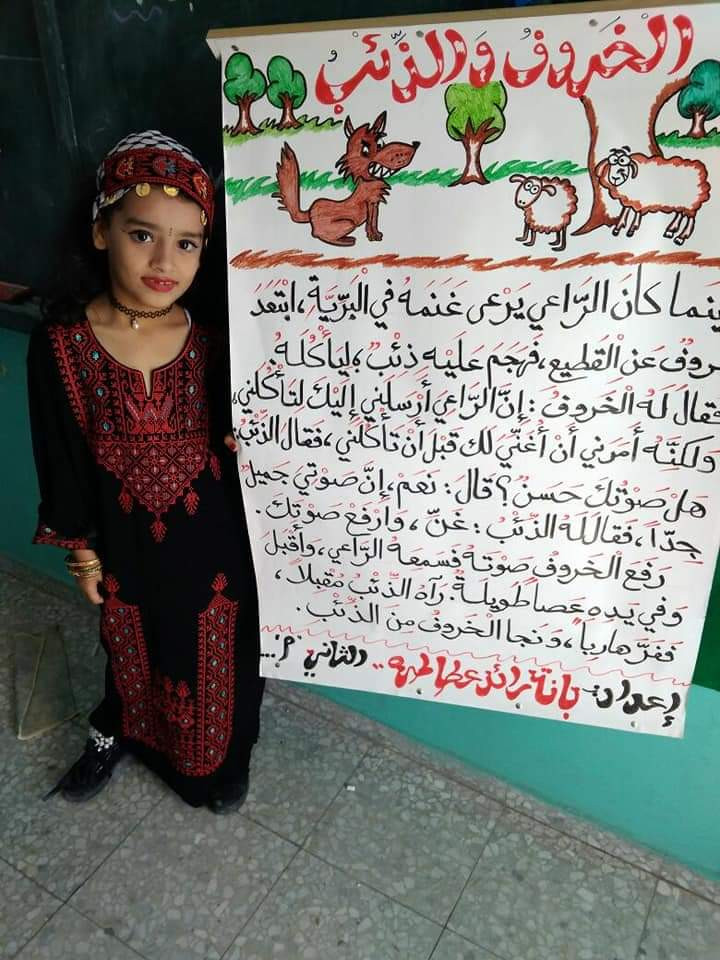 الْخَروفُ وَالذِّئبُ
بينَما كانَ الرّاعي يَرْعى غَنَمَهُ في الْبَرِّيَّةِ، ابْتَعَدَ
خَروفٌ عَنِ الْقَطيعِ، فَهَجَمَ عَلَيْهِ ذِئْبٌ، لِيَأْكُلَهُ
فَقالَ لَهُ الْخَروفُ: إِنَّ الرّاعِيَ أَرْسَلَني إِلَيْكَ لِتَأْكُلَني،
وَلكِنَّهُ أَمَرَني أَنْ أُغَنِّيَ لَكَ قَبْلَ أَنْ تَأْكُلَني، فَقالَ الذِّئْبُ:
هَلْ صَوْتُكَ حَسَنٌ؟ قالَ: نَعَمْ، إِنَّ صَوْتي جَميلٌ
جِدّاً، فَقالَ لَهُ الذِّئْبُ: غَنِّ، وَارْفَعْ صَوْتَكَ.
رَفَعَ الْخَروفُ صَوْتَهُ فَسَمِعَهُ الرّاعي، وَأَقْبَلَ
وَفي يَدِهِ عَصاً طَويلَةٌ. رَآهُ الذِّئْبُ مُقْبِلاً،
فَفَرَّ هارِباً، وَنَجا الْخَروفُ مِنَ الذِّئْبِ.
إعداد: بانة رائد عطاطره.. الثاني